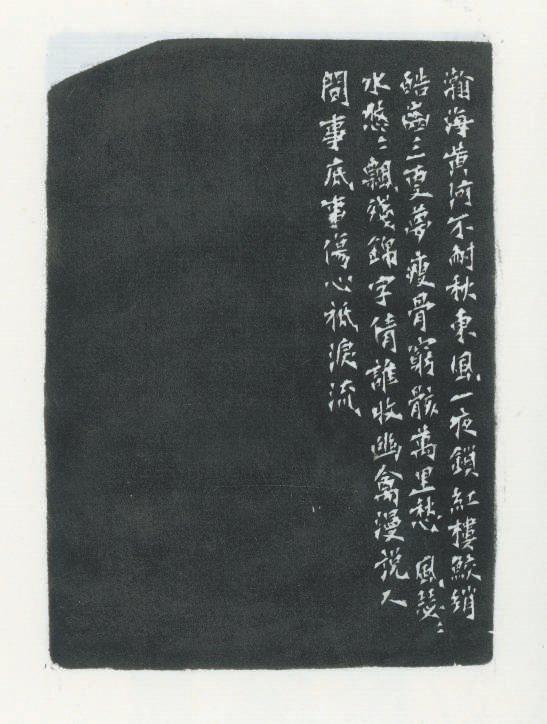 瀚海黄河不耐秋東風一夜鎖紅樓鮫綃
皓齒三更夢瘦骨窮骸萬里愁　風瑟〻
水悠〻飄殘錦字倩誰收幽禽漫説人
間事底事傷心祗淚流